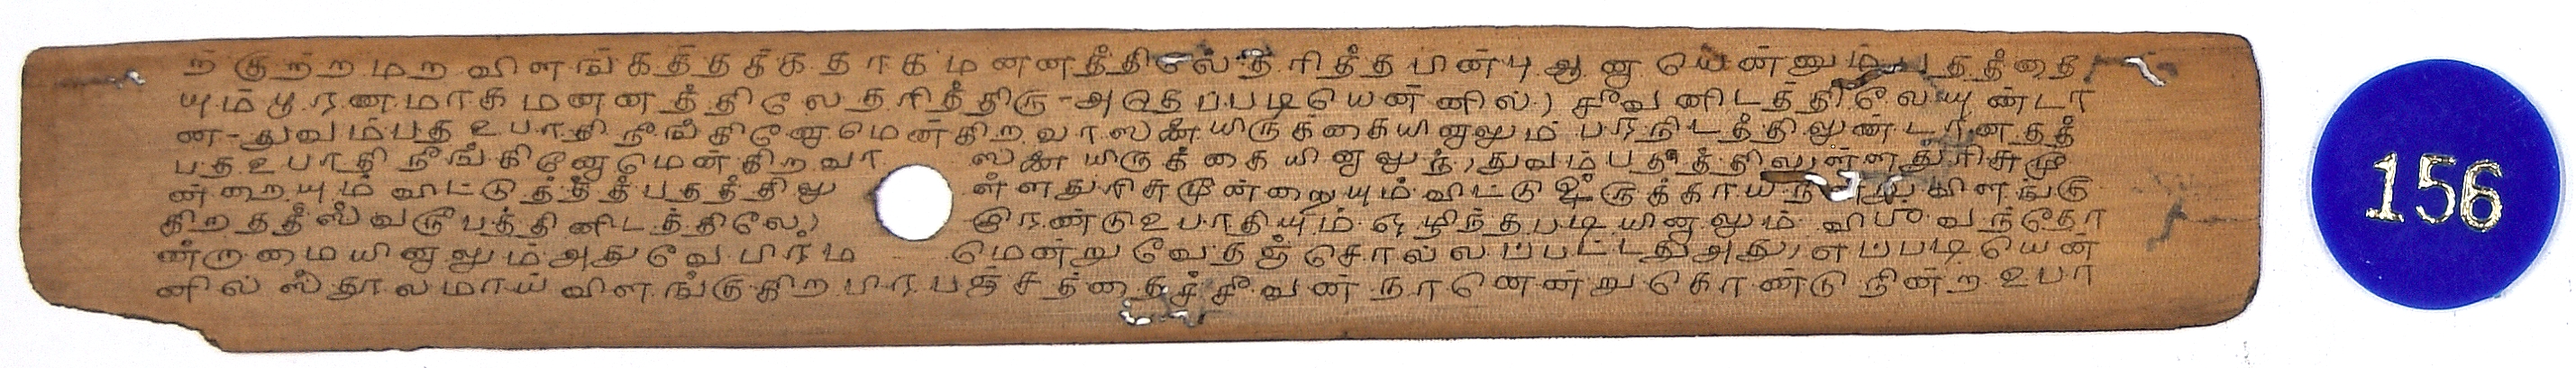 ற்குற்றமறவிளங்கத்தக்கதாகமனனத்திலேதரித்தபின்புஆனுயென்னும்பதத்தை
யும்பூரணமாகமனனத்திலேதரித்திரு-அதெப்படியென்னில்) சீவனிடத்திலேயுண்டா
ன-துவம்பதஉபாதிநீங்கினேமென்கிறவாஸனையிருக்கையினாலும் பரநிடத்திலுண்டானதத்
பதஉபாதிநீங்கினேமென்கிறவா ஸனையிருக்கையினாலுந்,துவம்பதத்திலுள்ளதுரிசுமூ
ன்றையும்விட்டுத்தத்பதத்திலு ள்ளதுரிசுமூன்றையும்விட்டு விளங்கு
கிறதத்ஸ்வரூபத்தினிடத்திலே) இரண்டுஉபாதியும்ஒழிந்தபடியினாலும்
ன்றாமையினாலும்அதுவேபிரம மென்றுவேதஞ்சொல்லப்பட்டதுஅது)எப்படியென்
னில்ஸ்தூலமாய்விளங்குகிறபிரபஞ்சத்தைச்சீவன்நானென்றுகொண்டுநின்றஉபா
156